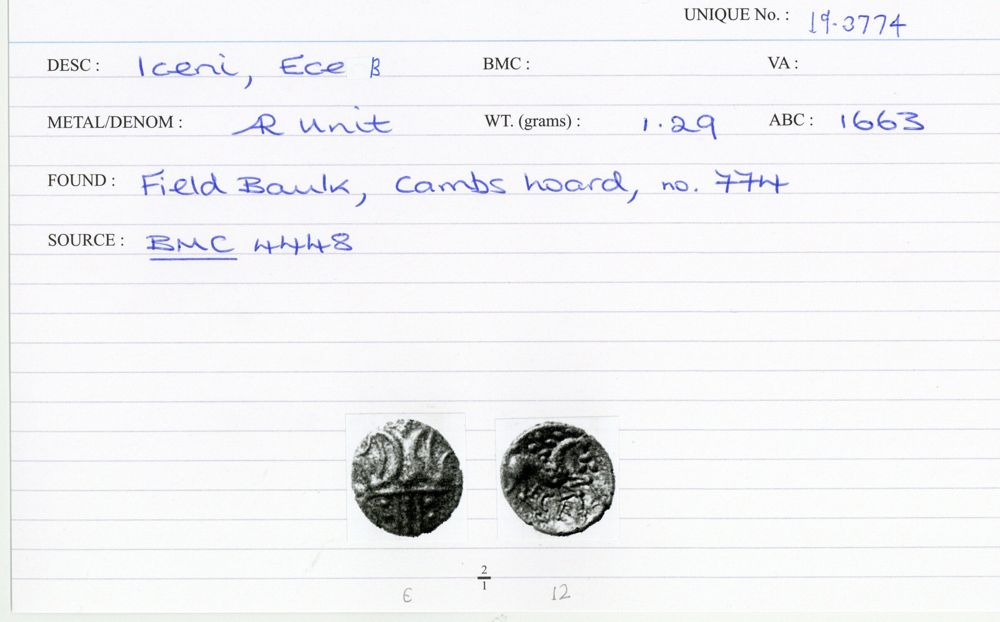 UNIQUE No. : 19-3774
DESC : Iceni, Ece B BMC : VA :
METAL/DENOM : AR Unit WT. (grams) : 1.29 ABC : 1663
FOUND : Field Baulk, Cambs hoard, no. 774
SOURCE : BMC 4448
2
1
6 12